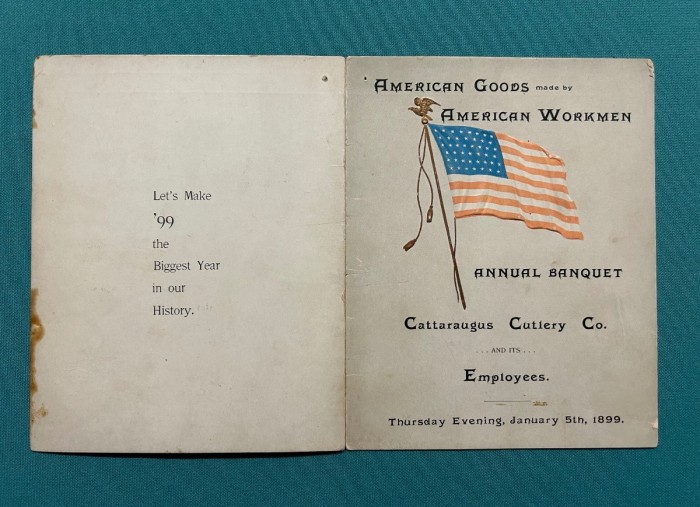 Let's Make
'99
the
Biggest Year
in our
History.
American Goods made by
American Workmen
ANNUAL BANQUET
Cattaraugus Cutlery Co.
...AND ITS...
Employees.
Thursday Evening, January 5th, 1899.